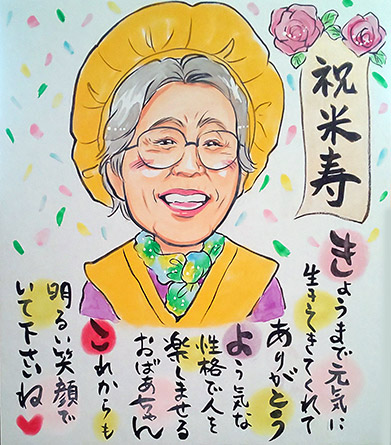 祝米寿
きょうまで元気に
生きてきてくれて
ありがとう
よう気な
性格で人を
楽しませる
おばあちゃん
これからも
明るい笑顔で
いて下さいね